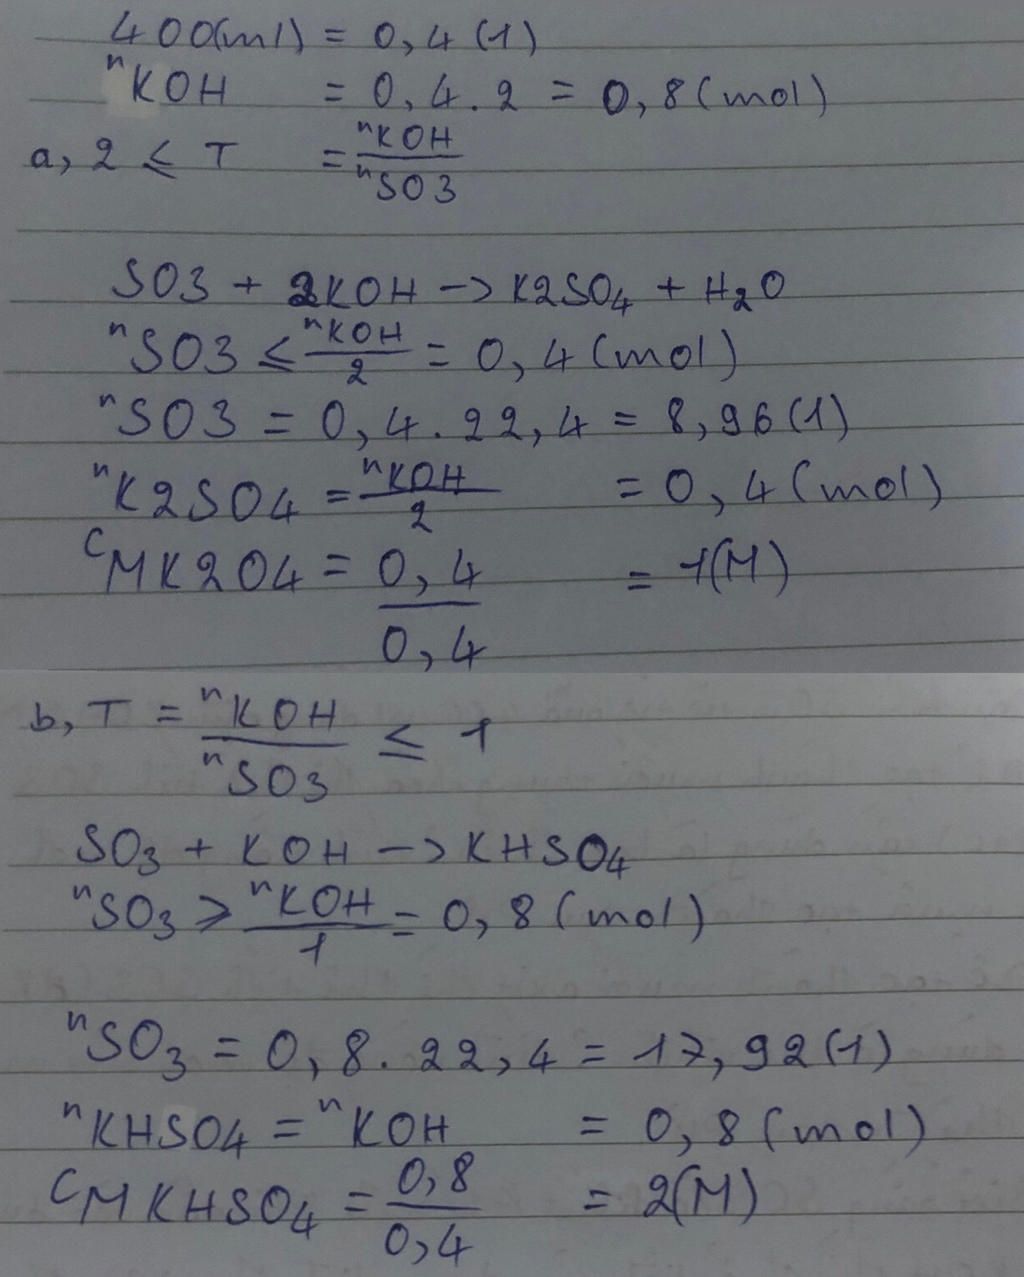 400(ml) = 0,4(l)
nKOH = 0,4.2 = 0,8(mol)
a, 2 ≤ T = nKOH/nSO3
SO3 + 2KOH -> K2SO4 + H2O
nSO3 ≤ nKOH/2 = 0,4(mol)
nSO3 = 0,4.22,4 = 8,96(l)
nK2SO4 = nKOH/2 = 0,4(mol)
CMK2O4 = 0,4/0,4 = 1(M)
b, T = nKOH/nSO3 ≤ 1
SO3 + KOH -> KHSO4
nSO3 ≥ nKOH/1 = 0,8(mol)
nSO3 = 0,8.22,4 = 17,92(l)
nKHSO4 = nKOH = 0,8(mol)
CMKHSO4 = 0,8/0,4 = 2(M)